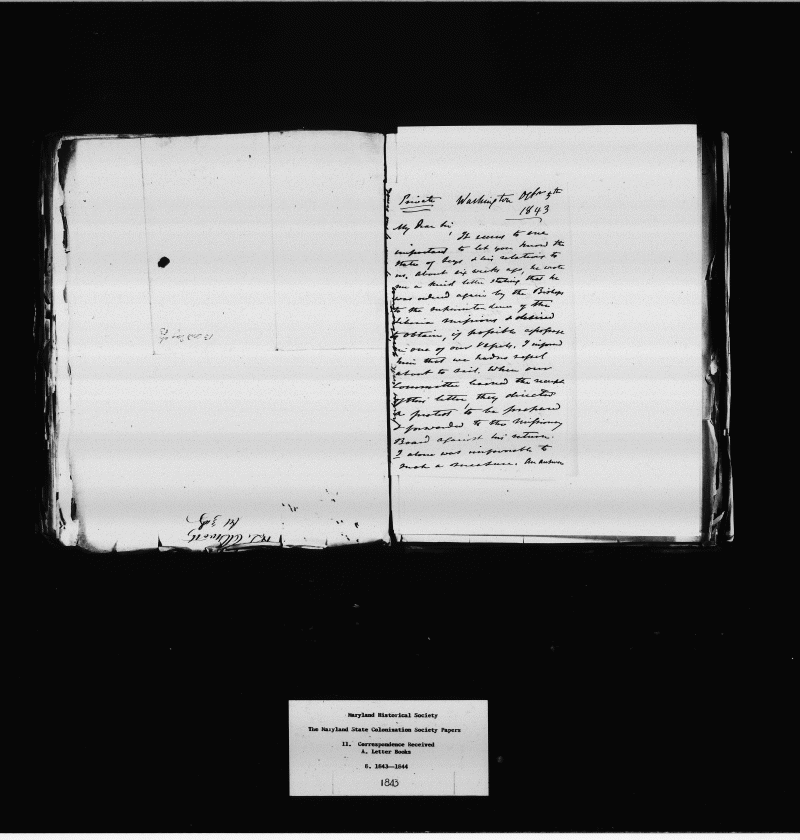 Private Washington
1843
My Dear Sir,
It seems to me
important to let you know the
state of Seys & his relations to
us. About six weeks ago, he wrote
me a kind letter stating that he
was ordered again by the Bishops
to the superintendence of the
Liberia missions & desired
to obtain, if possible a passage
in one of our vessels. I informd
him that we had no vessel
about to sail. When our
Committee learned the receipt
of this letter, they directed
a protest to be prepared
& forwarded to the Missionary
Board against his return.
I alone was unfavorable to
such a measure. An answer
Maryland Historical Society
The Maryland State Colonization Society Papers
II. Correspondence Received
A. Letter Books
8. 1843--1844
1843